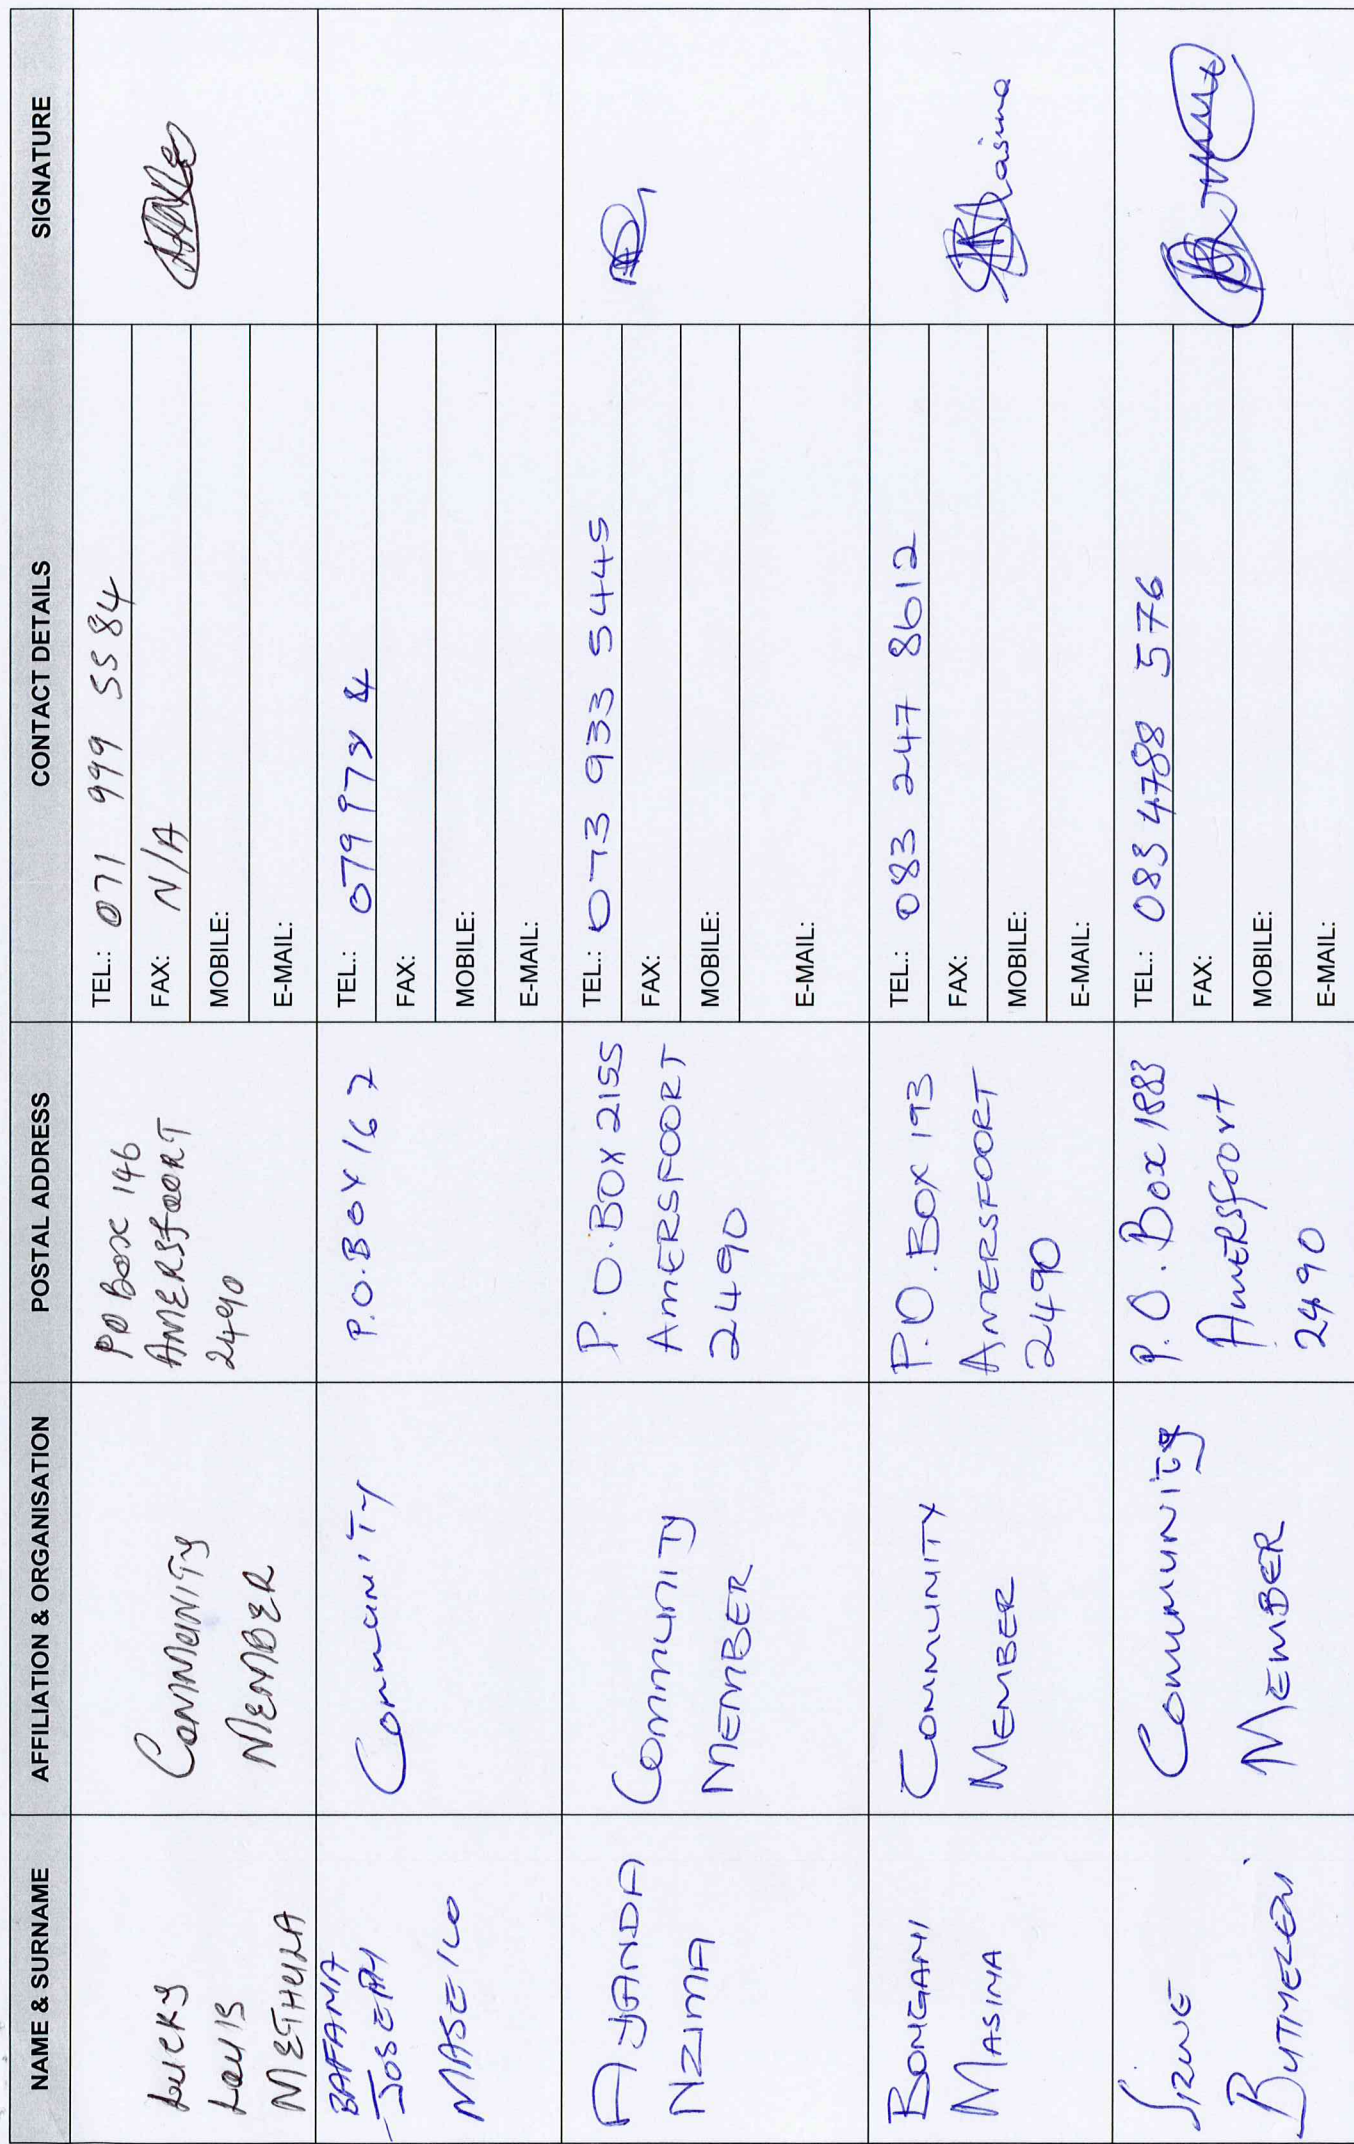 NAME & SURNAME
AFFILIATION & ORGANISATION
POSTAL ADDRESS
CONTACT DETAILS
SIGNATURE
LUCKY
LOUIS
METHULA
COMMUNITY
MEMBER
PO Box 146
AMERSFOORT
2490
TEL.: 071 999 5584
FAX: N/A
MOBILE:
E-MAIL:
BAFANA
JOSEPH
MASEKO
COMMUNITY
P.O. BOX 167
TEL.: 
FAX:
MOBILE:
E-MAIL:
AYANDA
NZIMA
COMMUNITY
MEMBER
P.O. BOX 2155
AMERSFOORT
2490
TEL.: 073 933 5445
FAX:
MOBILE:
E-MAIL:
BONGANI
MASINA
COMMUNITY
MEMBER
P.O. BOX 193
AMERSFOORT
2490
TEL.: 083 247 8612
FAX:
MOBILE:
E-MAIL:
Masina
SIZWE
BUTHELEZI
COMMUNITY
MEMBER
P.O. Box 1883
AMERSfoort
2490
TEL.: 083 4788 576
FAX:
MOBILE:
E-MAIL: